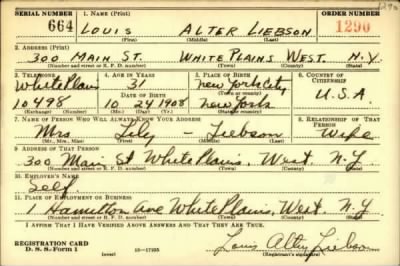 SERIAL NUMBER 1. NAME (Print) ORDER NUMBER
664 LOUIS ALTER LIEBSON 1290
(First) (Middle) (Last)
2. ADDRESS (Print)
300 MAIN ST. WHITE PLAINS WEST. N.Y.
(Number and street or R. F. D. number) (Town) (County) (State)
3. TELEPHONE 4. AGE IN YEARS 5. PLACE OF BIRTH 6. COUNTRY OF CITIZENSHIP
White Plain 31 New York City
DATE OF BIRTH (Town or county) U.S.A.
10498 10 24 1908 New York
(Exchange) (Number) (Mo.) (Day) (Yr.) (State or country)
7. NAME OF PERSON WHO WILL ALWAYS KNOW YOUR ADDRESS 8. RELATIONSHIP OF THAT PERSON
Mrs Lily - Liebson Wife
(Mr., Mrs., Miss) (First) (Middle) (Last)
9. ADDRESS OF THAT PERSON
300 Main St White Plains, West. N.Y
(Number and street or R. F. D. number) (Town) (County) (State)
10. EMPLOYER'S NAME
Self
11. PLACE OF EMPLOYMENT OR BUSINESS
1 Hamilton Ave White Plains, West. N.Y
(Number and street or R. F. D. number) (Town) (County) (State)
I AFFIRM THAT I HAVE VERIFIED ABOVE ANSWERS AND THAT THEY ARE TRUE.
REGISTRATION CARD
D. S. S. Form 1 (over) 16—17105 Louis Alter Liebson
(Registrant's signature)